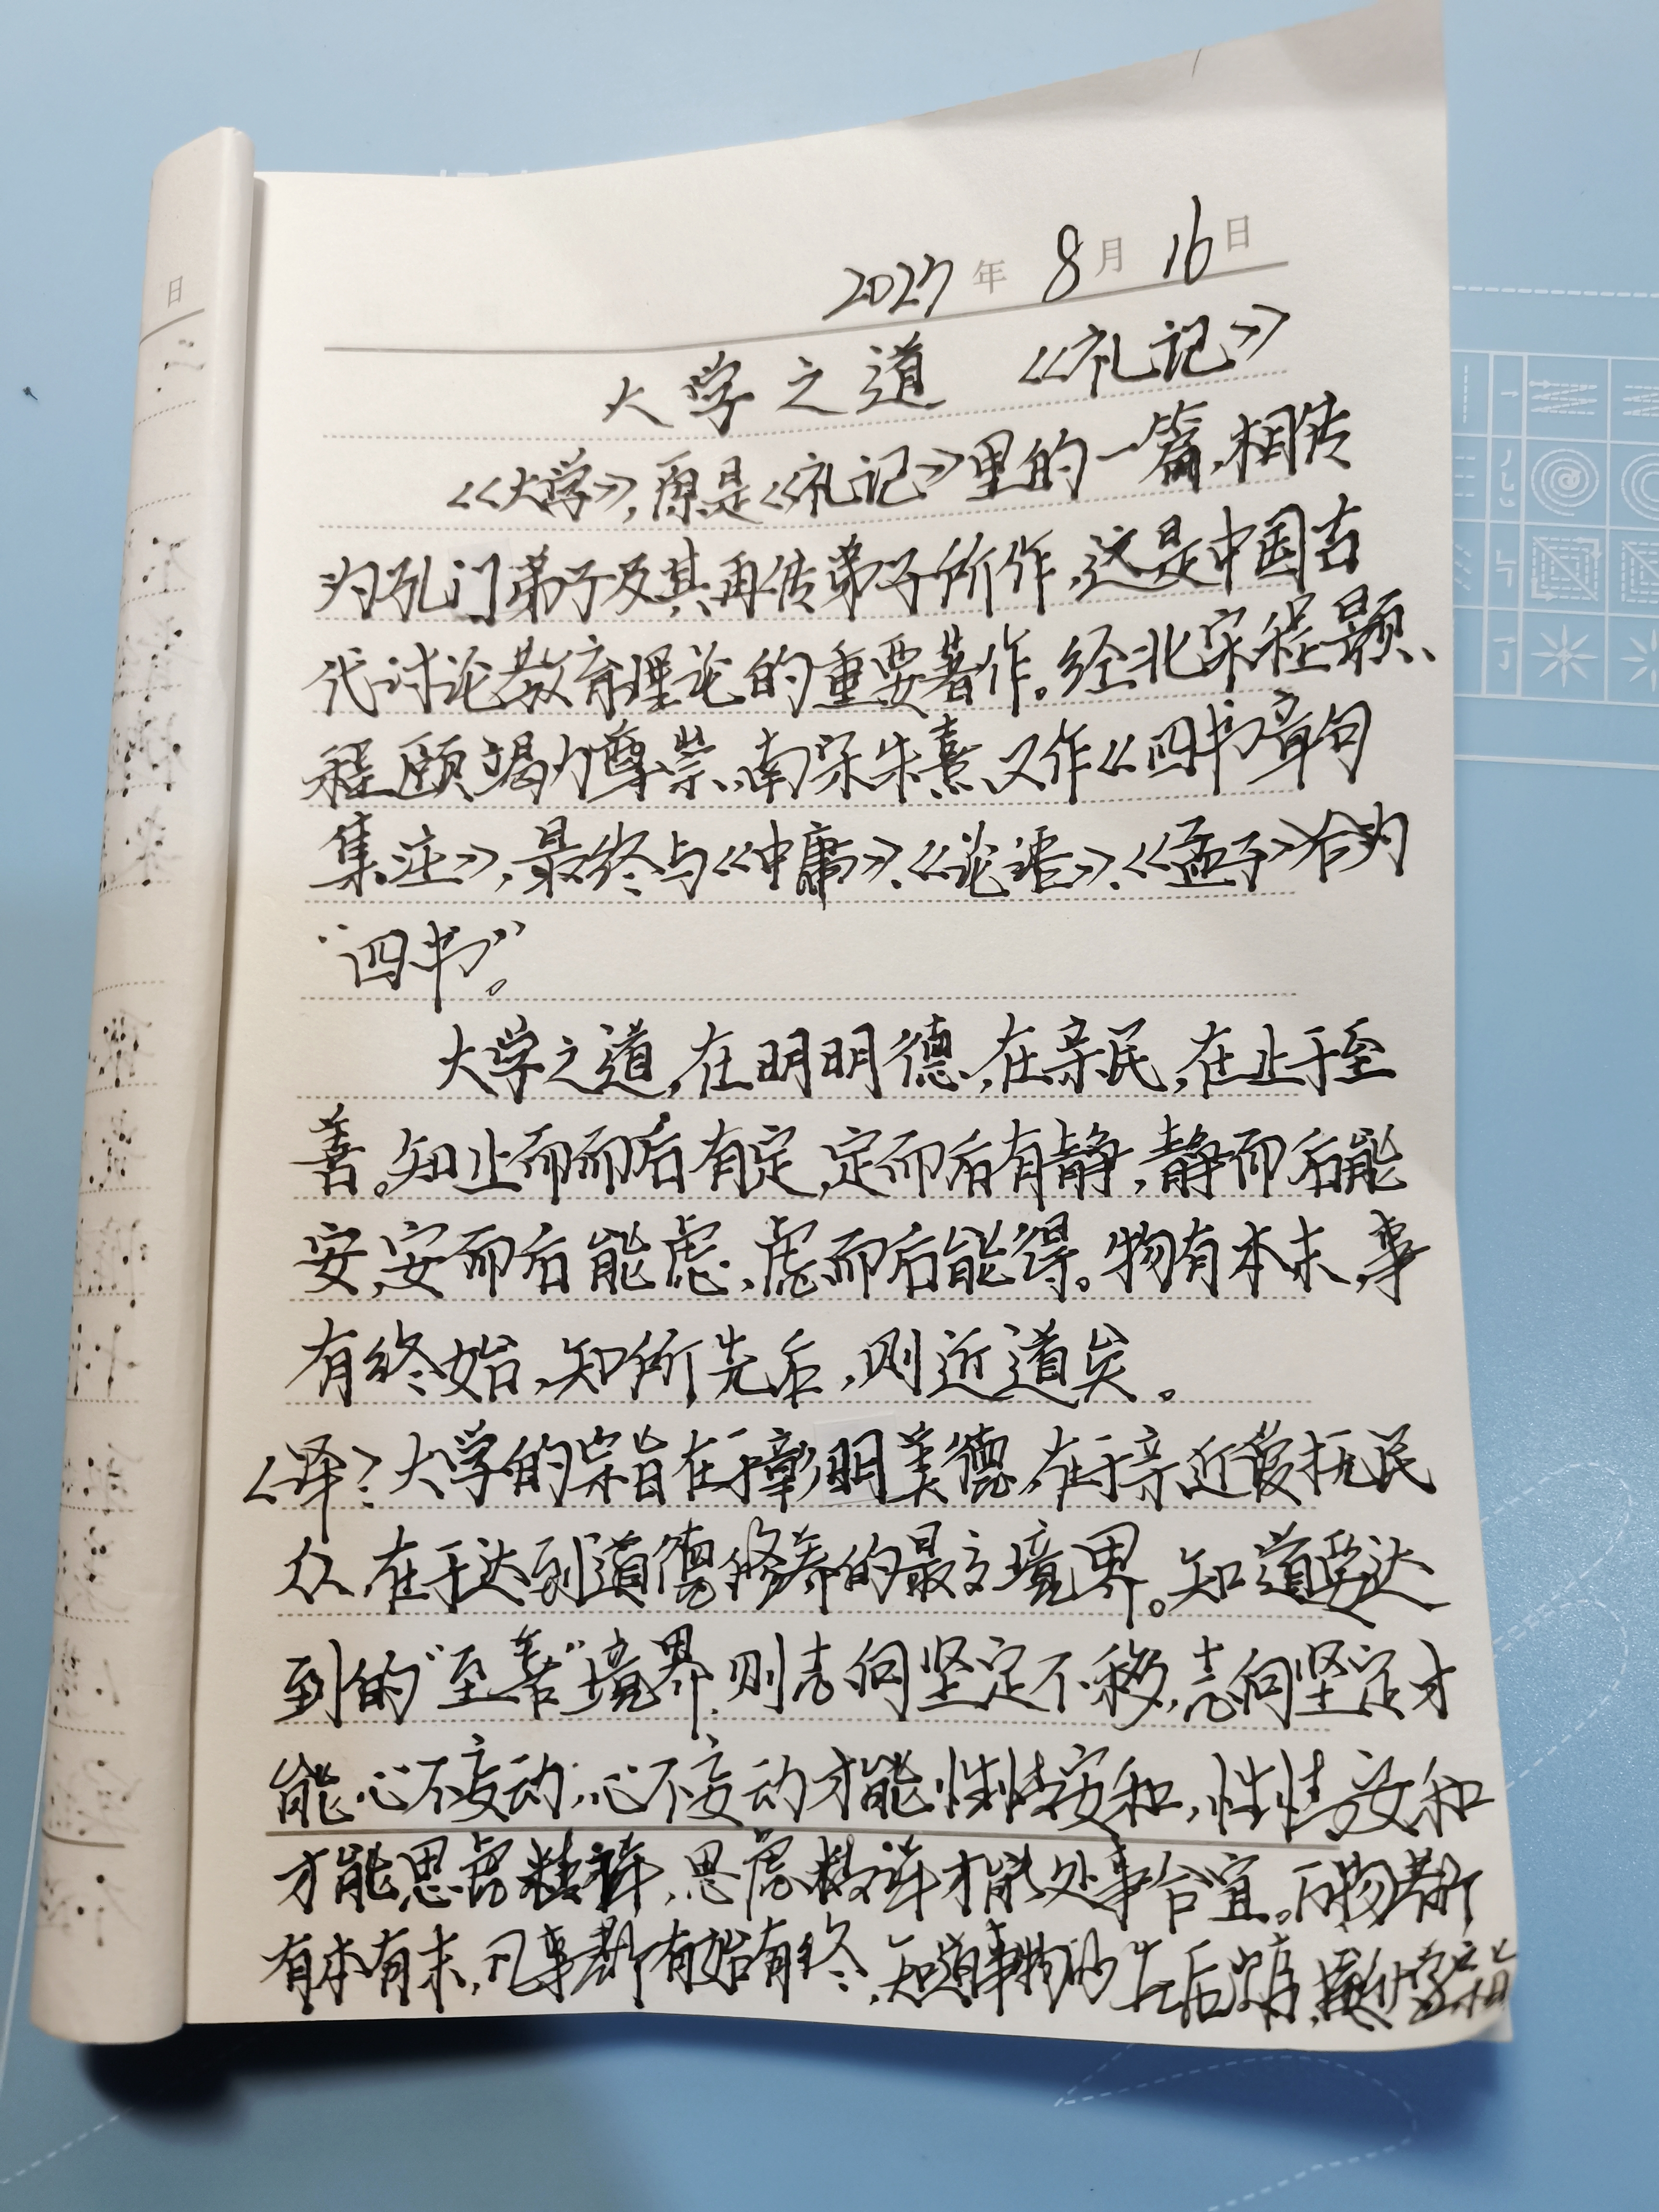 2027年8月16日
大学之道 《礼记》
《大学》,原是《礼记》里的一篇,相传
为孔门弟子及其再传弟子所作,这是中国古
代讨论教育理论的重要著作。经北宋程颢、
程颐竭力尊崇,南宋朱熹又作《四书章句
集注》,最终与《中庸》、《论语》、《孟子》合为
“四书”。
大学之道,在明明德,在亲民,在止于至
善。知止而而后有定,定而后有静,静而后能
安,安而后能虑,虑而后能得。物有本末,事
有终始,知所先后,则近道矣。
<译>大学的宗旨在于彰明美德,在于亲近爱抚民
众,在于达到道德修养的最高境界。知道要达
到的“至善”境界,则志向坚定不移,志向坚定才
能心不妄动,心不妄动才能性情安和,性情安和
才能思虑精祥,思虑精详才能处事合宜。万物都
有本有末,凡事都有始有终,知道事物的先后次序,
日